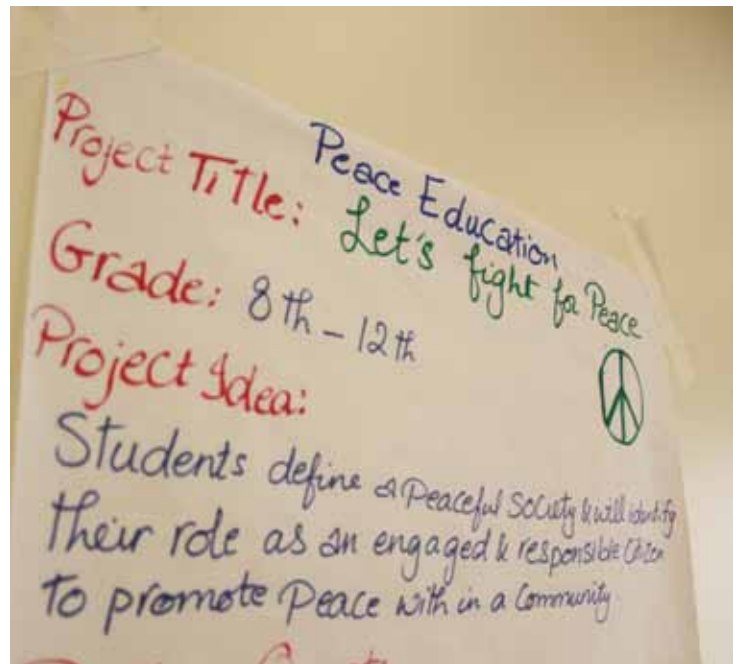 Peace Education
Project Title: Let's fight for Peace
Grade: 8th - 12th
Project Idea:
Students define a Peaceful Society & will identify
their role as an engaged & responsible Citizen
to promote Peace with in a Community.